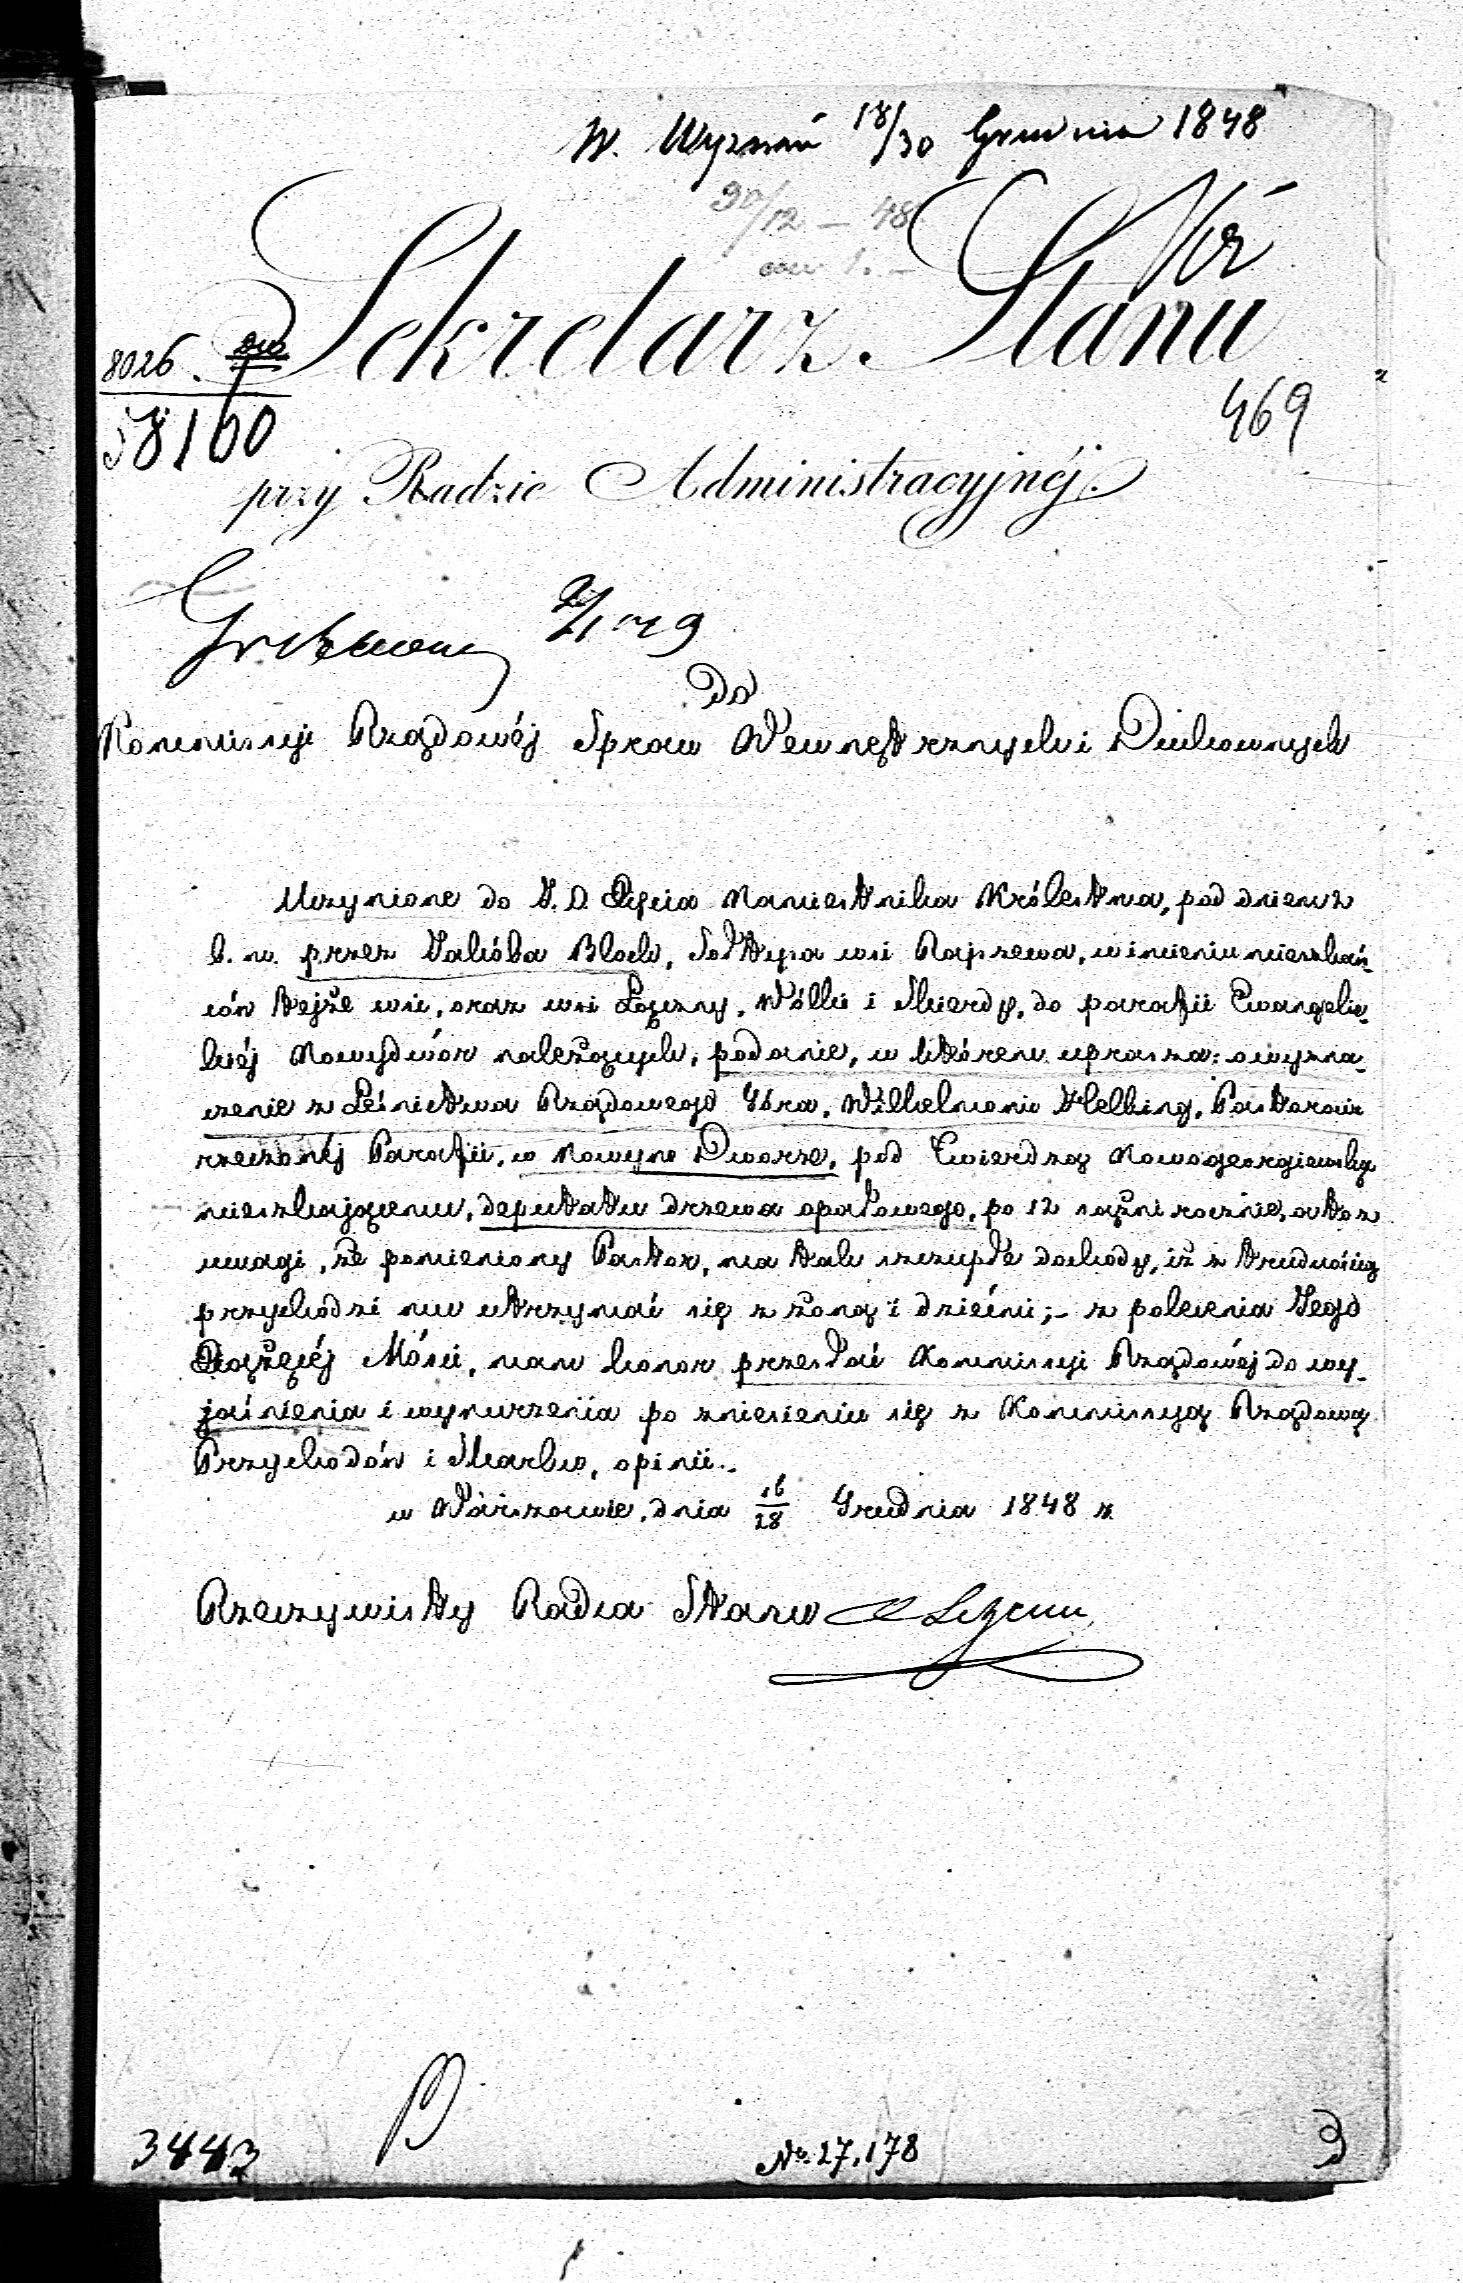 W. Wyznań 18/30 Grudnia 1848
30/12 – 48
Sekretarz Stanu
8026.
58160
469
przy Radzie Administracyjnéj.
Do
Kommissyi Rządowéj Spraw Wewnętrznych i Duchownych
Uczynione do J. O. Xięcia Namiestnika Królestwa, pod dniem 2
b. m. przez Jakóba Bloch, Sołtysa wsi Rajszewa, w imieniu mieszkań-
ców tejże wsi, oraz wsi Łajczny, Wólki i Skierdy, do parafii Ewangelic-
kiéj Nowydwór należących, podanie, w którem uprasza: o wyzna-
czenie z Leśnictwa Rządowego Góra, Wilhelmowi Helbing, Pastorowi
rzeczonéj Parafii, w Nowym Dworze, pod Twierdzą Nowogeorgiewską
mieszkającemu, deputatu drzewa opałowego, po 12 sążni rocznie, a to z
uwagi, że pomieniony Pastor, ma tak szczupłe dochody, iż z trudnością
przychodzi mu utrzymać się z żoną i dziećmi; – z polecenia Jego
Xiążęcéj Mości, mam honor przesłać Kommissyi Rządowéj do wy-
jaśnienia i wynurzenia po zniesieniu się z Kommissyą Rządową
Przychodów i Skarbu, opinii.
w Warszawie, dnia 16/28 Grudnia 1848 r.
Rzeczywisty Radca Stanu
3443
No. 27,178
3